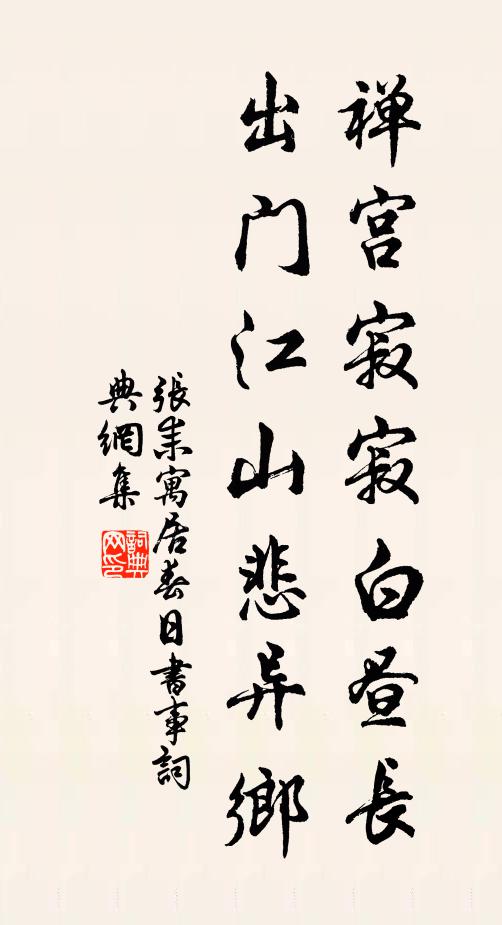 禅宫寂寂白昼長
出门江山悲异鄉
張耒寓居春日書事詞
典網集
詞典网印